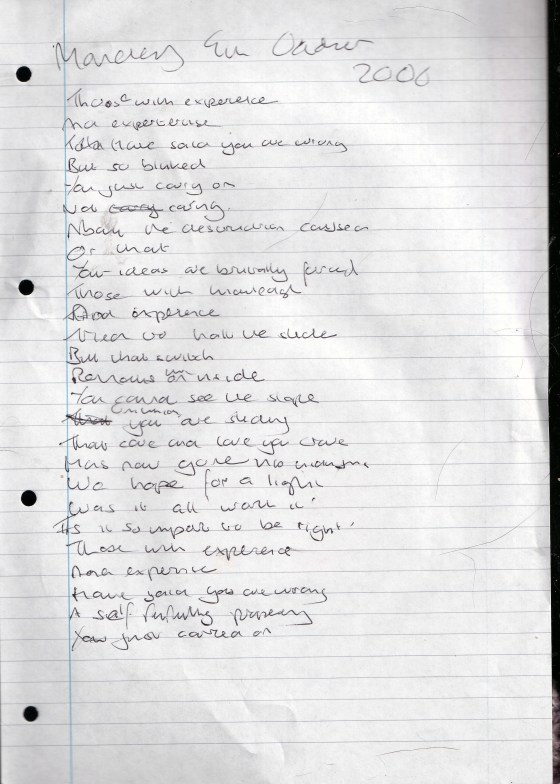 Monday 2006
Those with experence
And experteruse
Have said you are wrong
But so blinked
You just carry on
Not caring
About the destruction caused
Or that
Your ideas are brutally forced
Those with knowleagh
And experence
Tried to halt the slide
But that switch
Remains on inside
You cannot see the slope
On which you are sliding
That love and love you crave
Has now gone
We hope for a light
Was it all worth it'
Is it so import to be right'
Those with experence
And expertice
Have said you are wrong
A self fulfilling prophecy
You just carred on